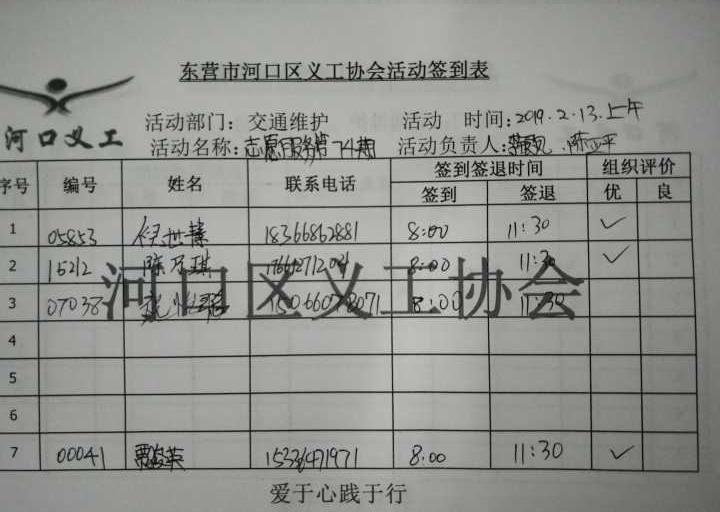 东营市河口区义工协会活动签到表
河口义工
活动部门：交通维护 活动 时间：2019.2.13.上午
活动名称：志愿服务第74期 活动负责人：
序号 编号 姓名 联系电话 签到签退时间 组织评价
签到 签退 优 良
1 05853 18366862881 8:00 11:30 ✓
2 15212 陈乃琪 8:00 11:30 ✓
3 07038 15066078071 8:00 11:30
河口区义工协会
4
5
6
7 00041 8:00 11:30 ✓
爱于心践于行